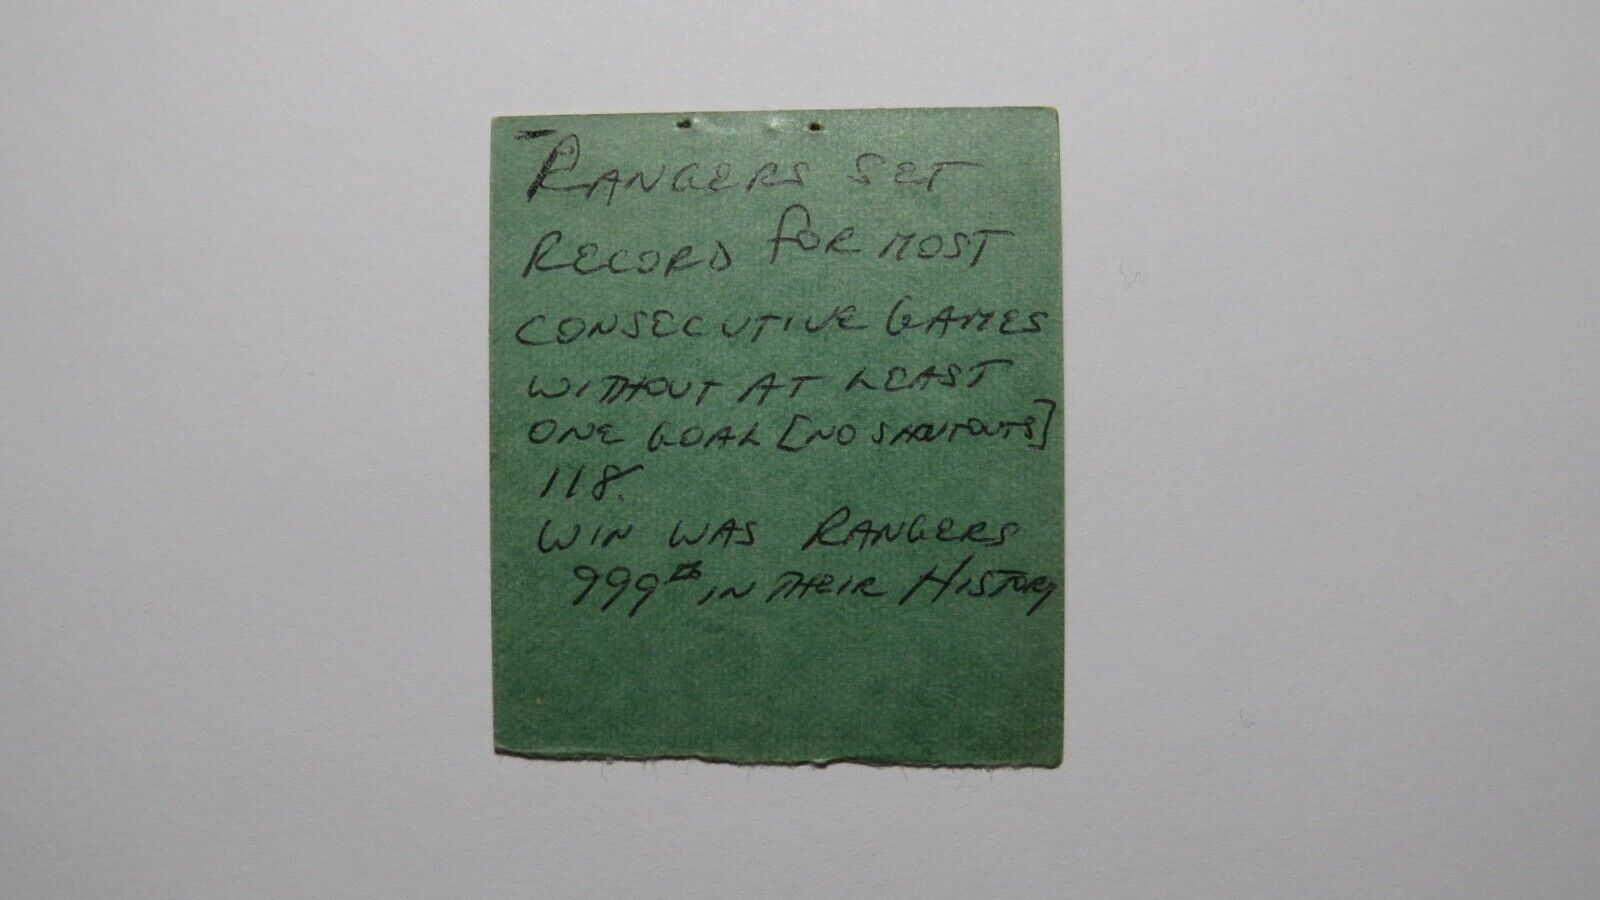 RANGERS SET
RECORD FOR MOST
CONSECUTIVE GAMES
WITHOUT AT LEAST
ONE GOAL [NO SHUTOUTS]
118.
WIN WAS RANGERS
999th IN THEIR HISTORY